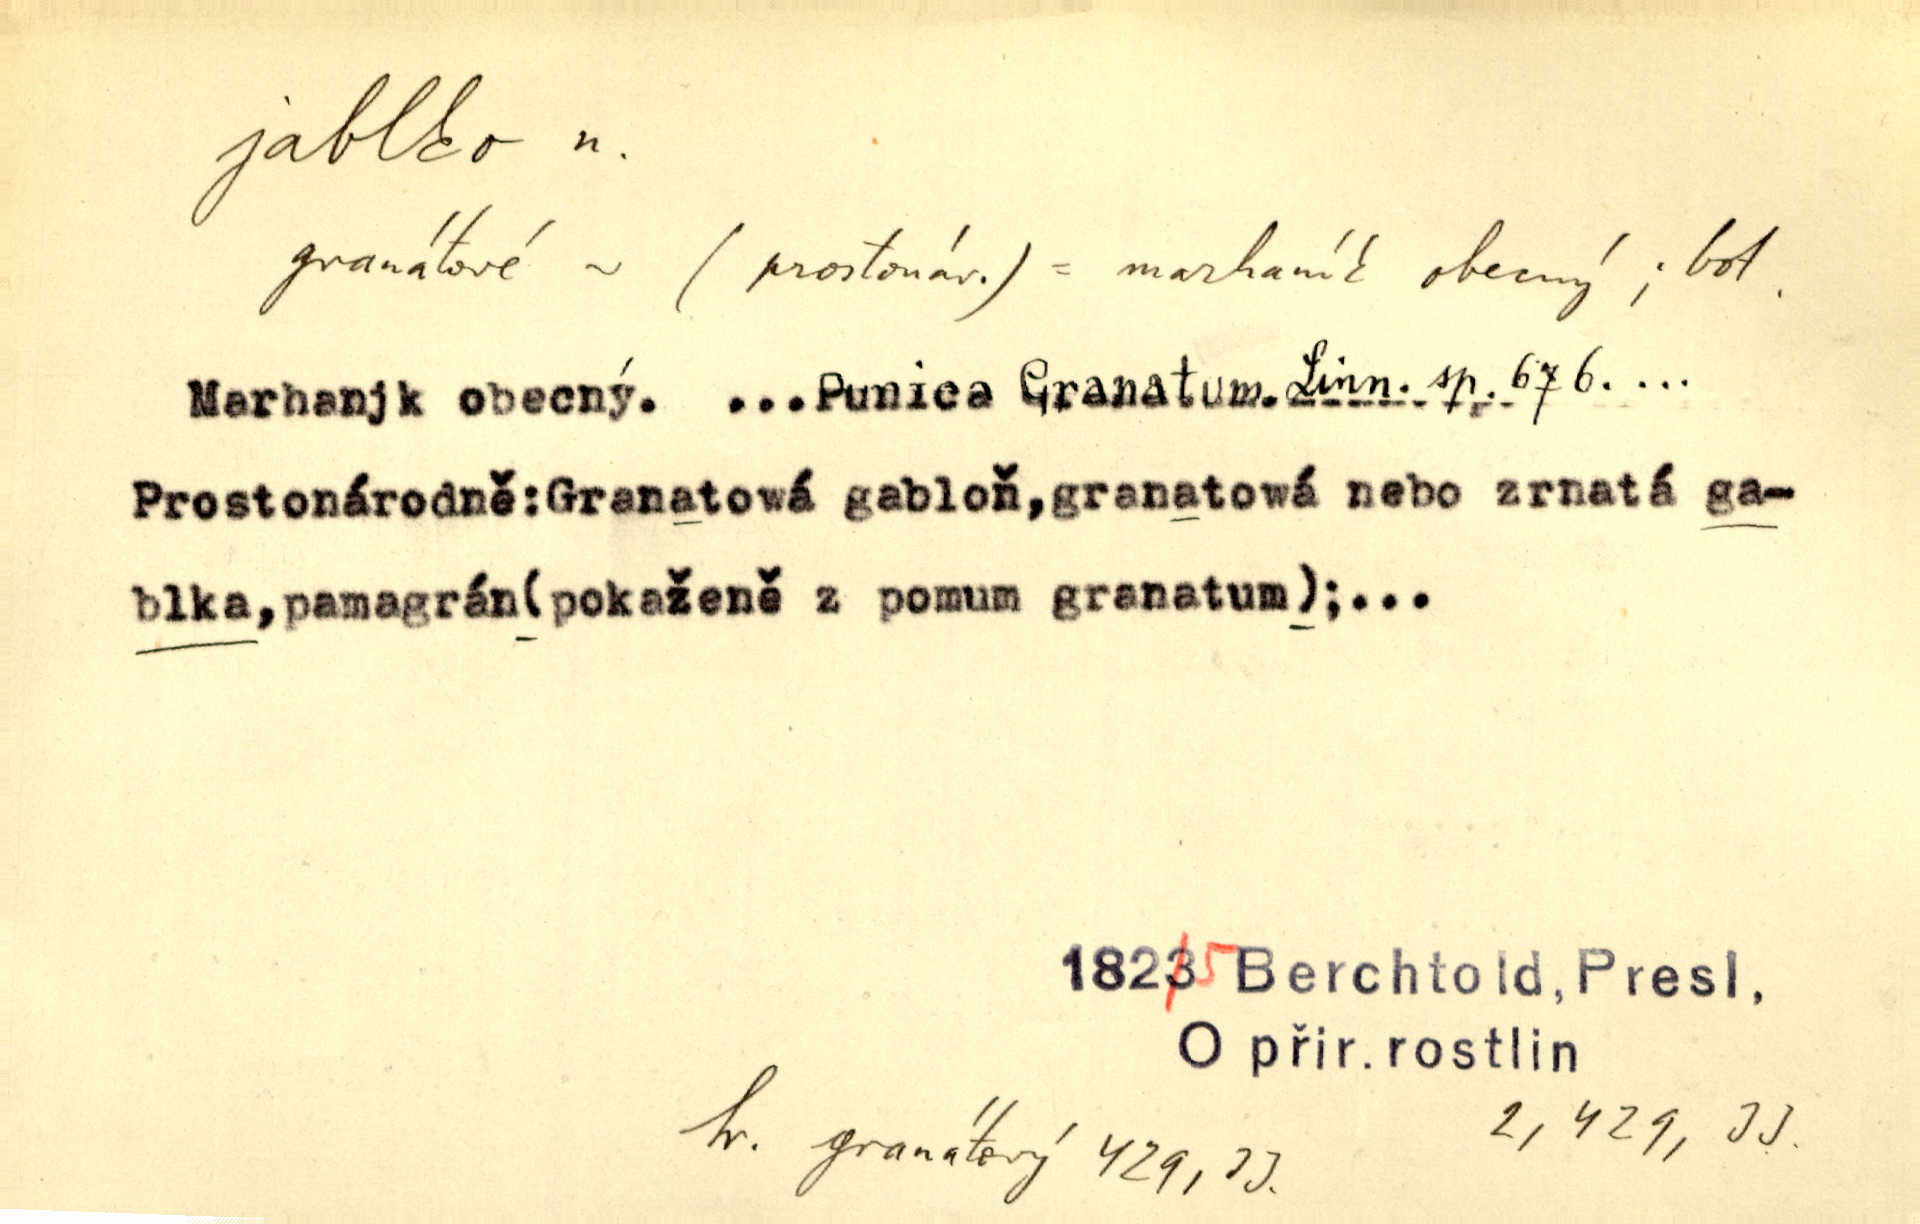 jablko n.
granátové ~ (prostonár.) = marhaník obecný ; bot.
Marhanjk obecný. ...Punica Granatum. Linn. sp. 676. ...
Prostonárodně:Granatowá gabloň,granatowá nebo zrnatá ga-
blka,pamagrán(pokaženě z pomum granatum);...
18235 Berchtold, Presl,
O přir. rostlin
2, 429, JJ.
hr. granátový 429, JJ.